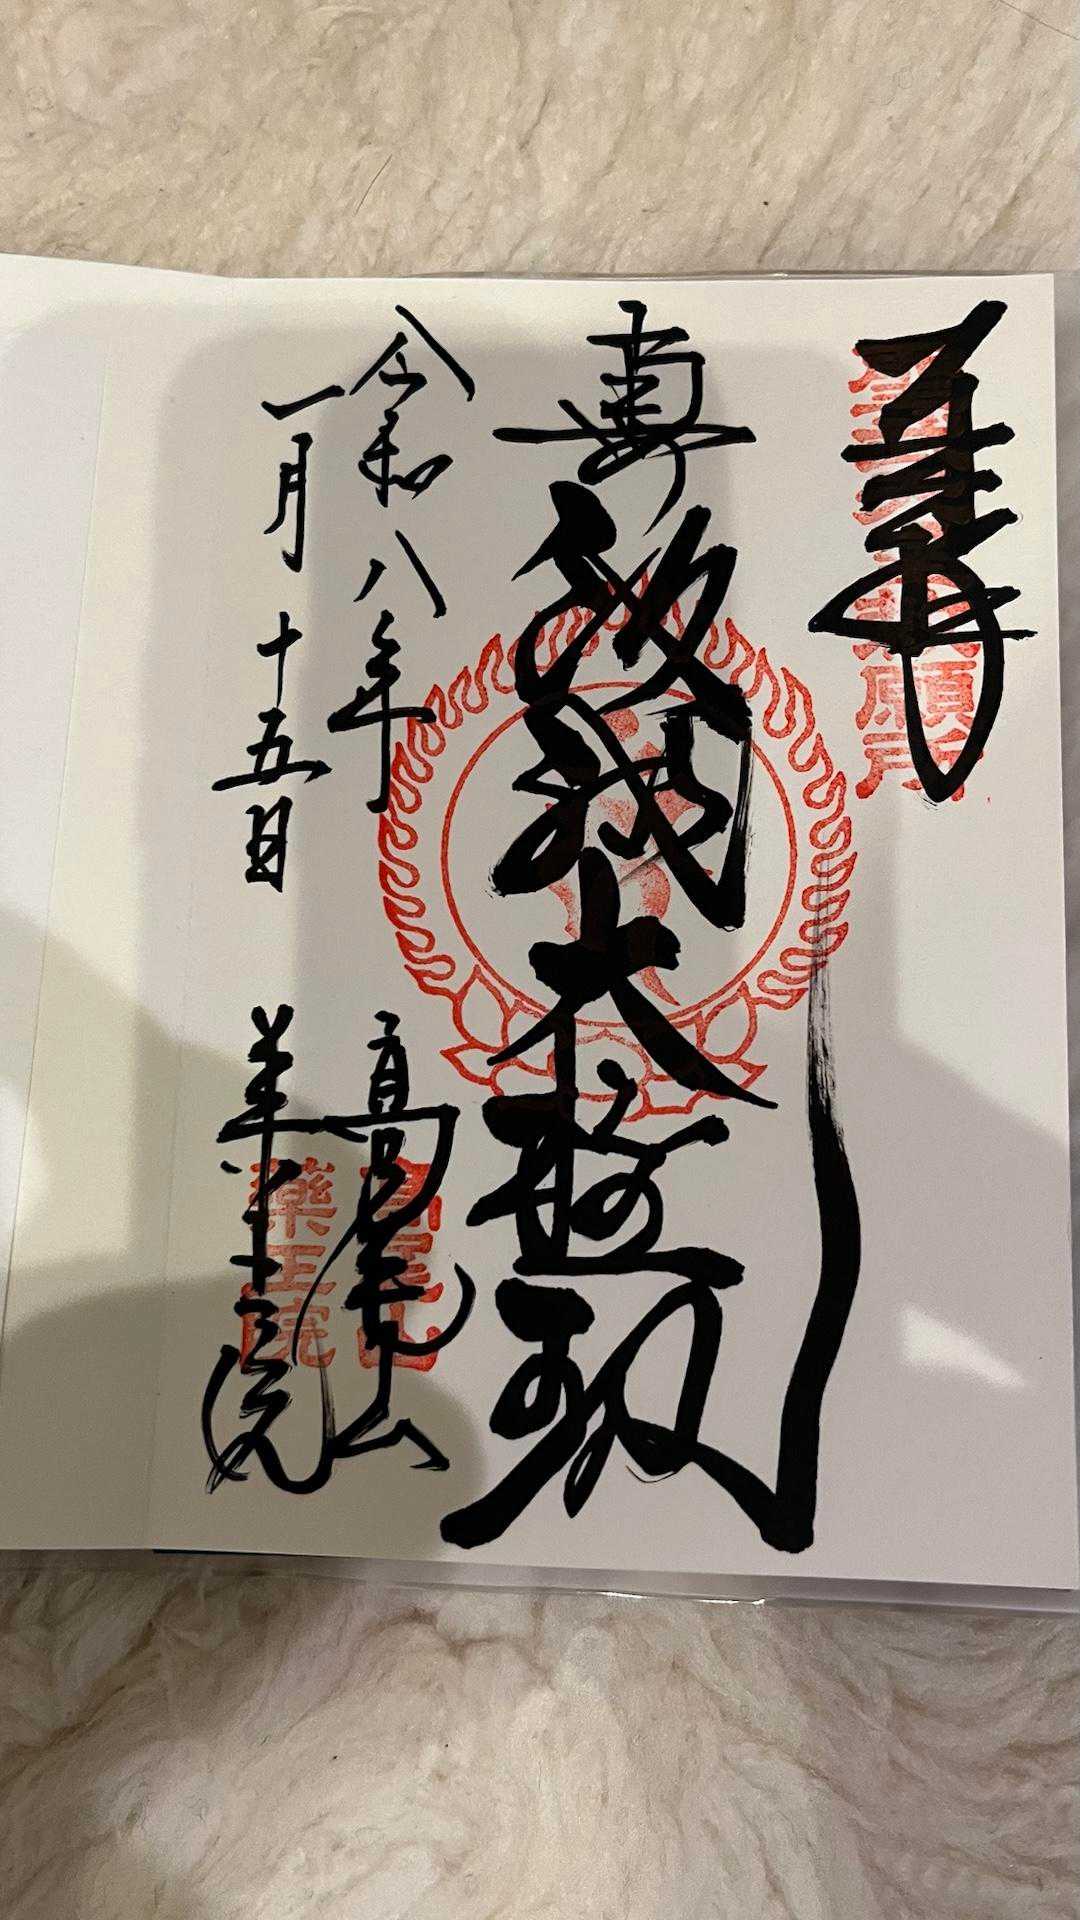 奉拝
願所
飯縄大権現
令和八年
一月十五日
高尾山
薬王院
高尾山
藥王院